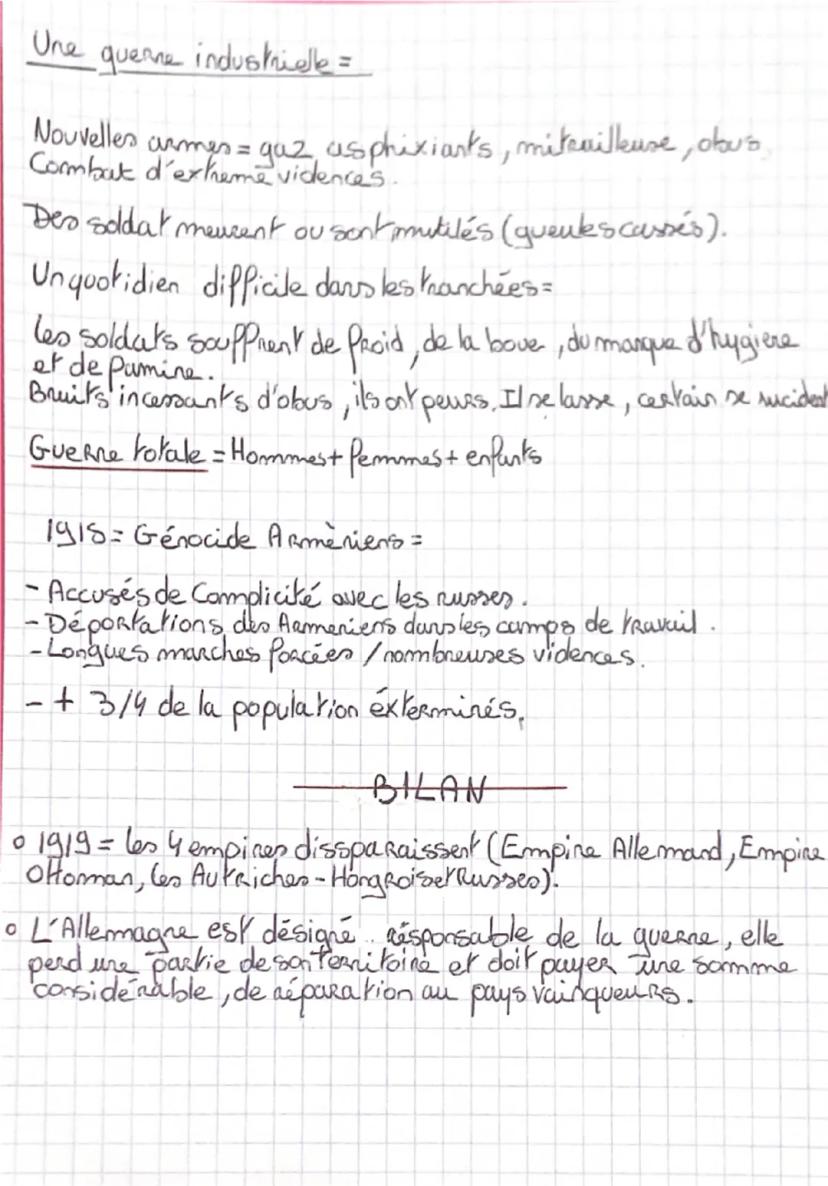 Une guerre industrielle =
Nouvelles armes = gaz asphixiants, mitrailleuse, obus
Combat d'extreme violences.
Des soldat meurent ou sont mutilés (gueules cassés).
Un quotidien difficile dans les tranchées =
Les soldats souffrent de froid, de la boue, du manque d'hygiene
et de famine.
Bruits incessants d'obus, ils ont peurs. Il se lasse, certain se suicident
Guerre totale = Hommes + femmes + enfants
1915 = Génocide Armèniens =
- Accusés de Complicité avec les russes.
- Déportations des Armeniens dans les camps de travail.
- Longues marches forcées / nombreuses violences.
- + 3/4 de la population éxterminés.
BILAN
o 1919 = les 4 empires dissparaissent (Empire Allemand, Empire
Ottoman, les Autriches-Hongroise et Russes).
o L'Allemagne est désigné résponsable de la guerre, elle
perd une partie de son territoire et doit payer une somme
considérable, de réparation au pays vainqueurs.